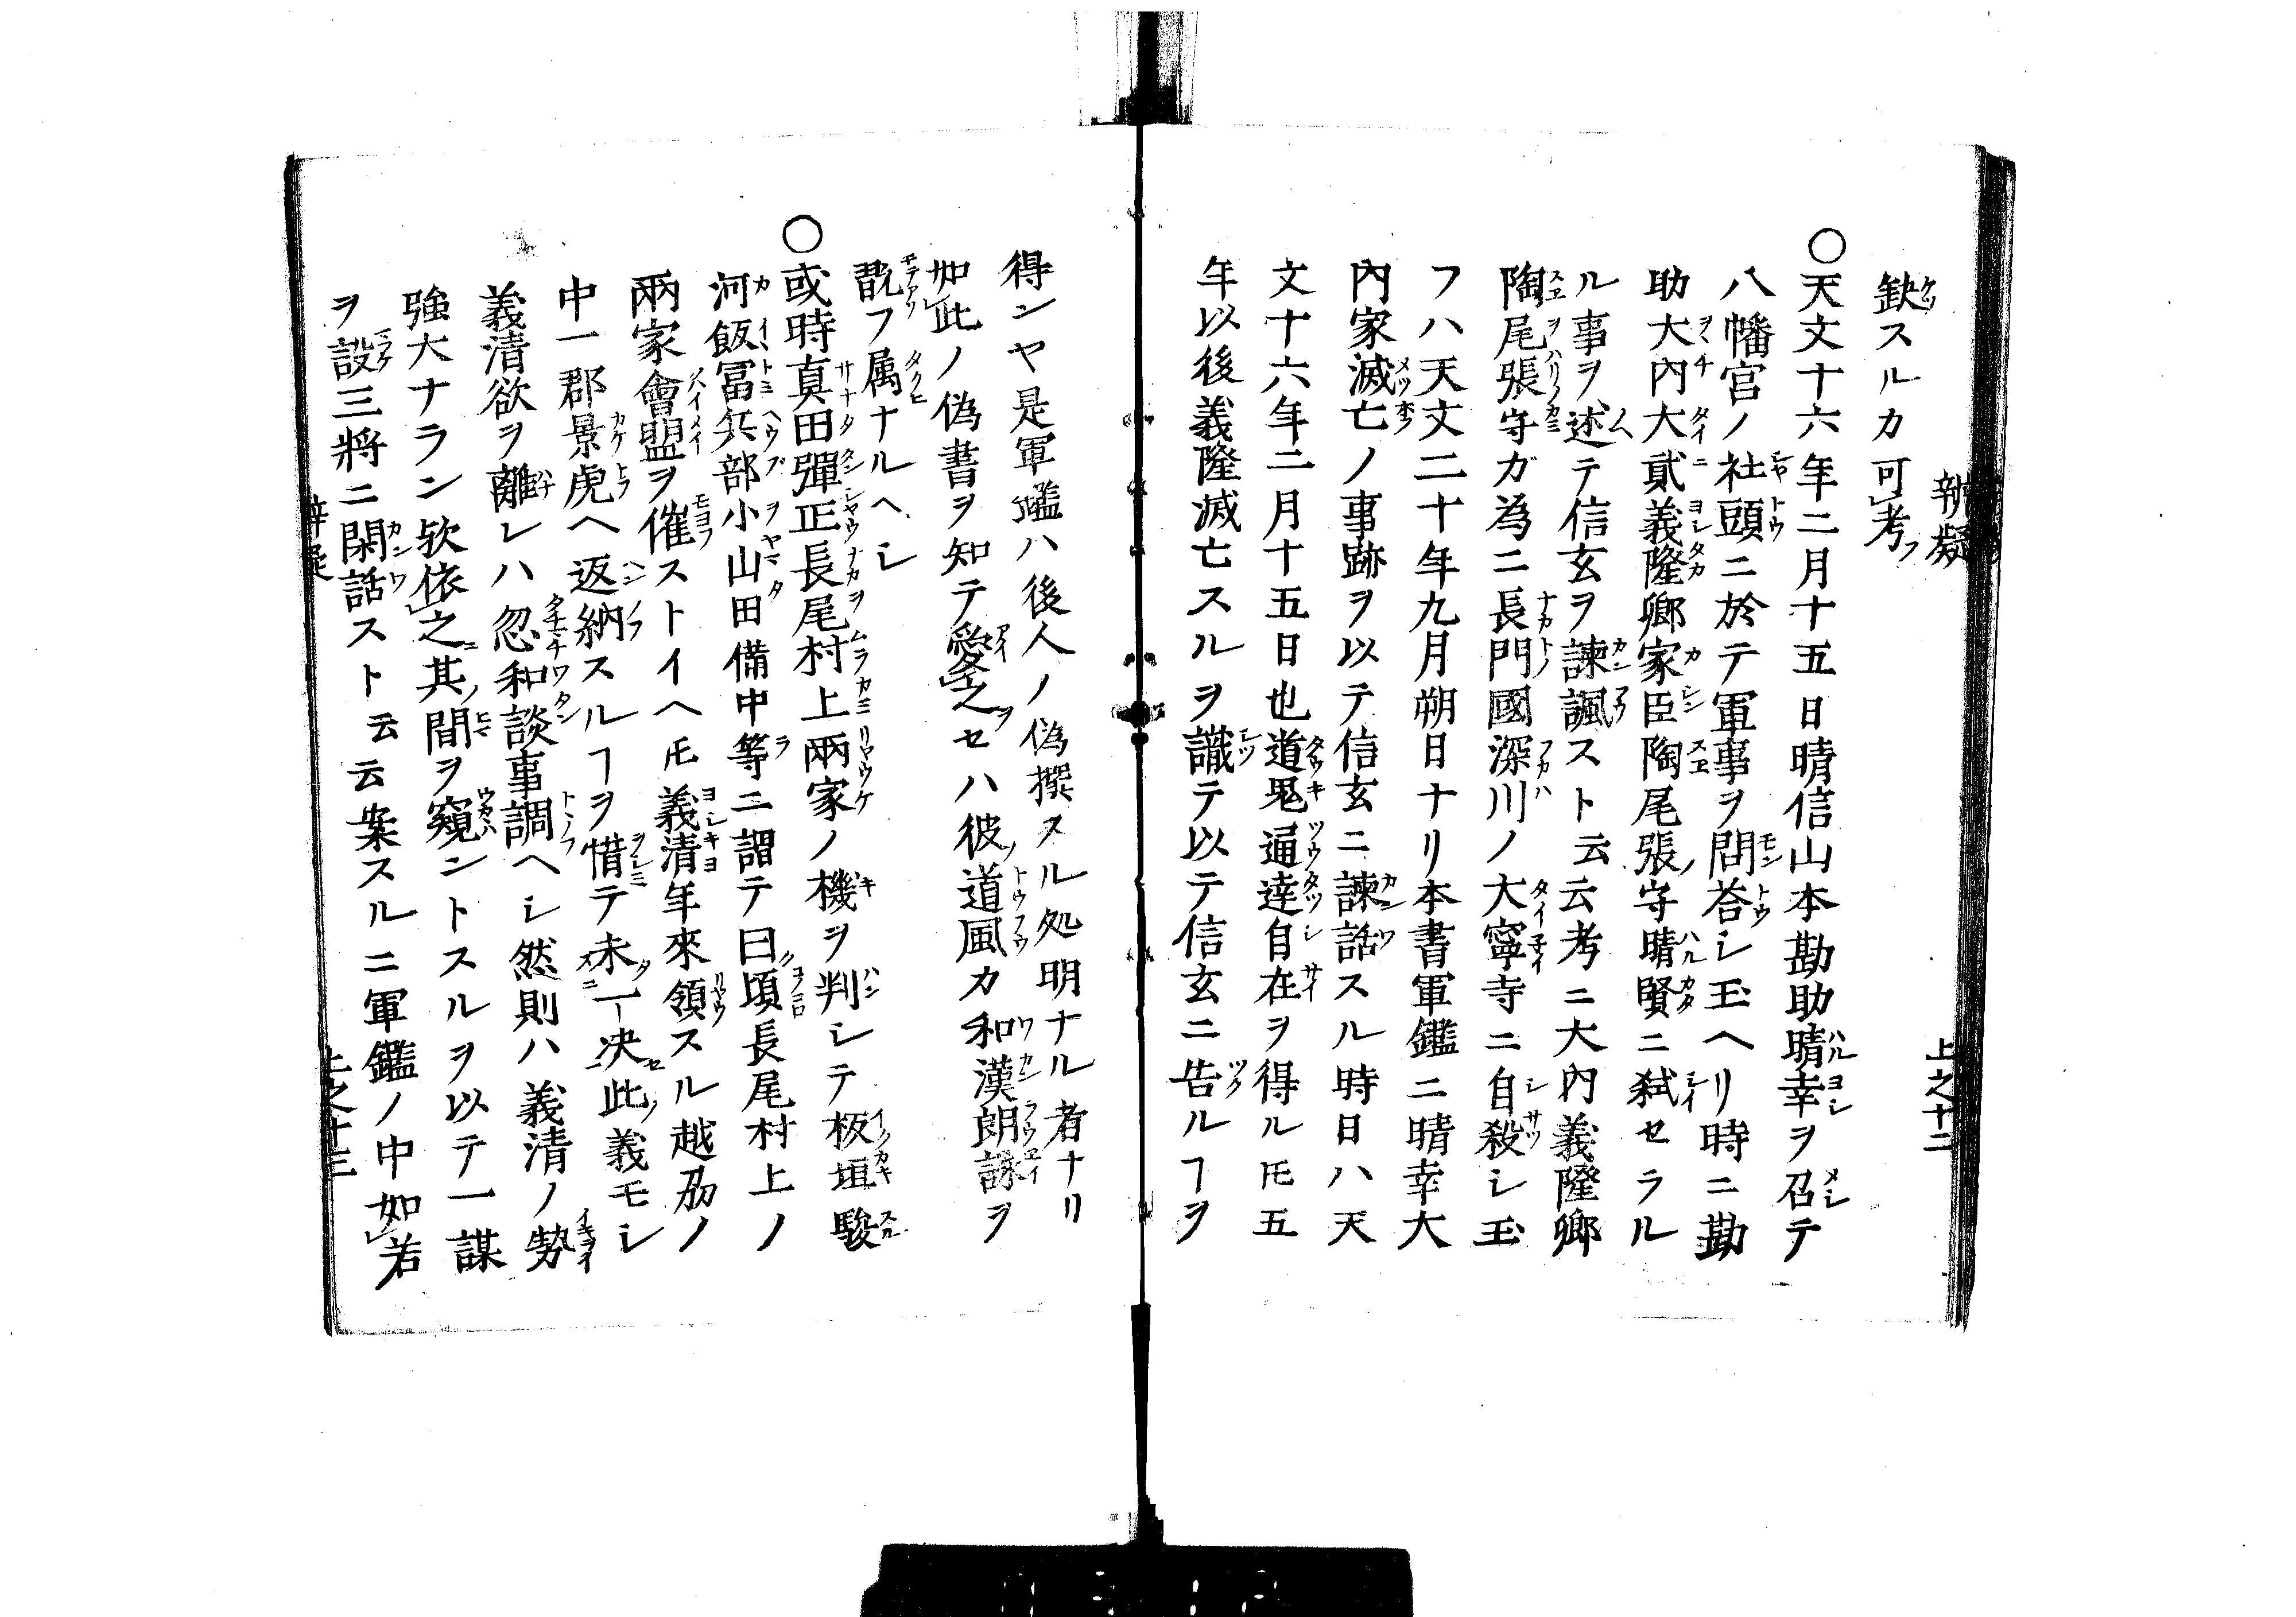 辨疑
上之十二
缺スルカ可考フ
○天文十六年二月十五日晴信山本勘助晴幸ヲ召テ
八幡宮ノ社頭ニ於テ軍事ヲ問荅シ玉ヘリ時ニ勘
助大內大貳義隆卿家臣陶尾張ノ守晴賢ニ弑セラル
ル事ヲ述テ信玄ヲ諫諷スト云云考ニ大內義隆卿
陶尾張守ガ為ニ長門國深川ノ大寧寺ニ自殺シ玉
フハ天文二十年九月朔日ナリ本書軍鑑ニ晴幸大
內家滅亡ノ事跡ヲ以テ信玄ニ諫話スル時日ハ天
文十六年二月十五日也道鬼通達自在ヲ得ルㇳモ五
年以後義隆滅亡スルヲ識テ以テ信玄ニ告ルヿヲ
得ンヤ是軍鑑ハ後人ノ偽撰スル処明ナル者ナリ
如此ノ偽書ヲ知テ愛之セハ彼ノ道風カ和漢朗詠ヲ
翫フ属ナルヘシ
○或時真田彈正長尾村上兩家ノ機ヲ判シテ板垣駿
河飯冨兵部小山田備中等ニ謂テ曰ク頃長尾村上ノ
兩家會盟ヲ催ストイヘㇳモ義清年來領スル越刕ノ
中一郡景虎ヘ返納スルヿヲ惜テ未一决此ノ義モシ
義清欲ヲ離レハ忽和談事調ヘシ然則ハ義清ノ勢
強大ナラン欤依之其ノ間ヲ窺ントスルヲ以テ一謀
ヲ設三将ニ閑話スト云云案スルニ軍鑑ノ中如若
上之十三